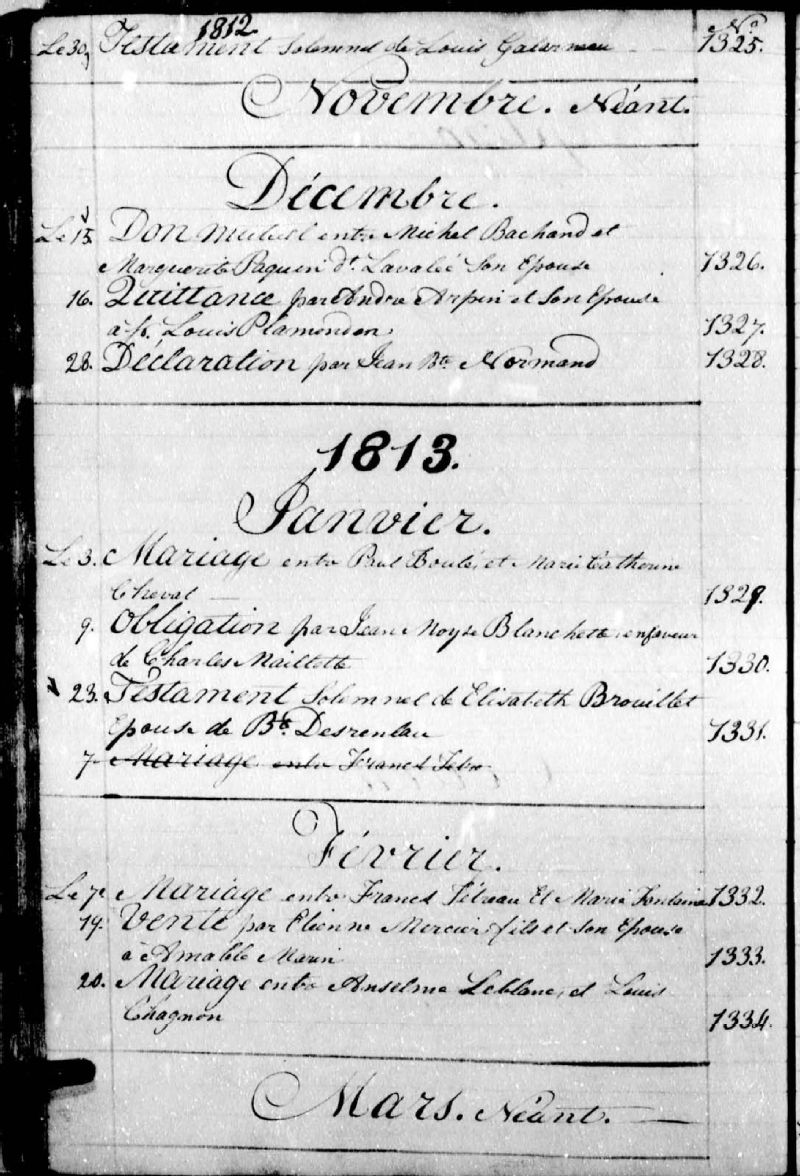 1812
No
Le 30, Testament Solemnel de Louis Galarneau 1325.
Novembre. Néant.
Décembre.
Le 15. Don mutuel entre Michel Bachand et
Marguerite Paquin dt. Lavaleé Son Epouse 1326.
16. Quittance par Andre Arpin et Son Epouse
à Louis Plamondon 1327.
28. Déclaration par Jean Bte Normand 1328.
1813.
Janvier.
Le 3. Mariage entre Paul Boulé, et Marie Catherine
Cheval 1329.
9. Obligation par Jean Moyse Blanchette enfaveur
de Charles Maillotte 1330.
23. Testament Solemnel de Elisabeth Brouillet
Epouse de Bte. Desrenleau 1331.
7. Mariage entre Francs Tetro
Février.
Le 7e Mariage entre Francs Tétreau Et Marie Fontaine 1332.
19. Vente par Etienne Mercier fils et Son Epouse
à Amable Marin 1333.
20. Mariage entre Anselme Leblanc, et Louis
Chagnon 1334.
Mars. Néant.